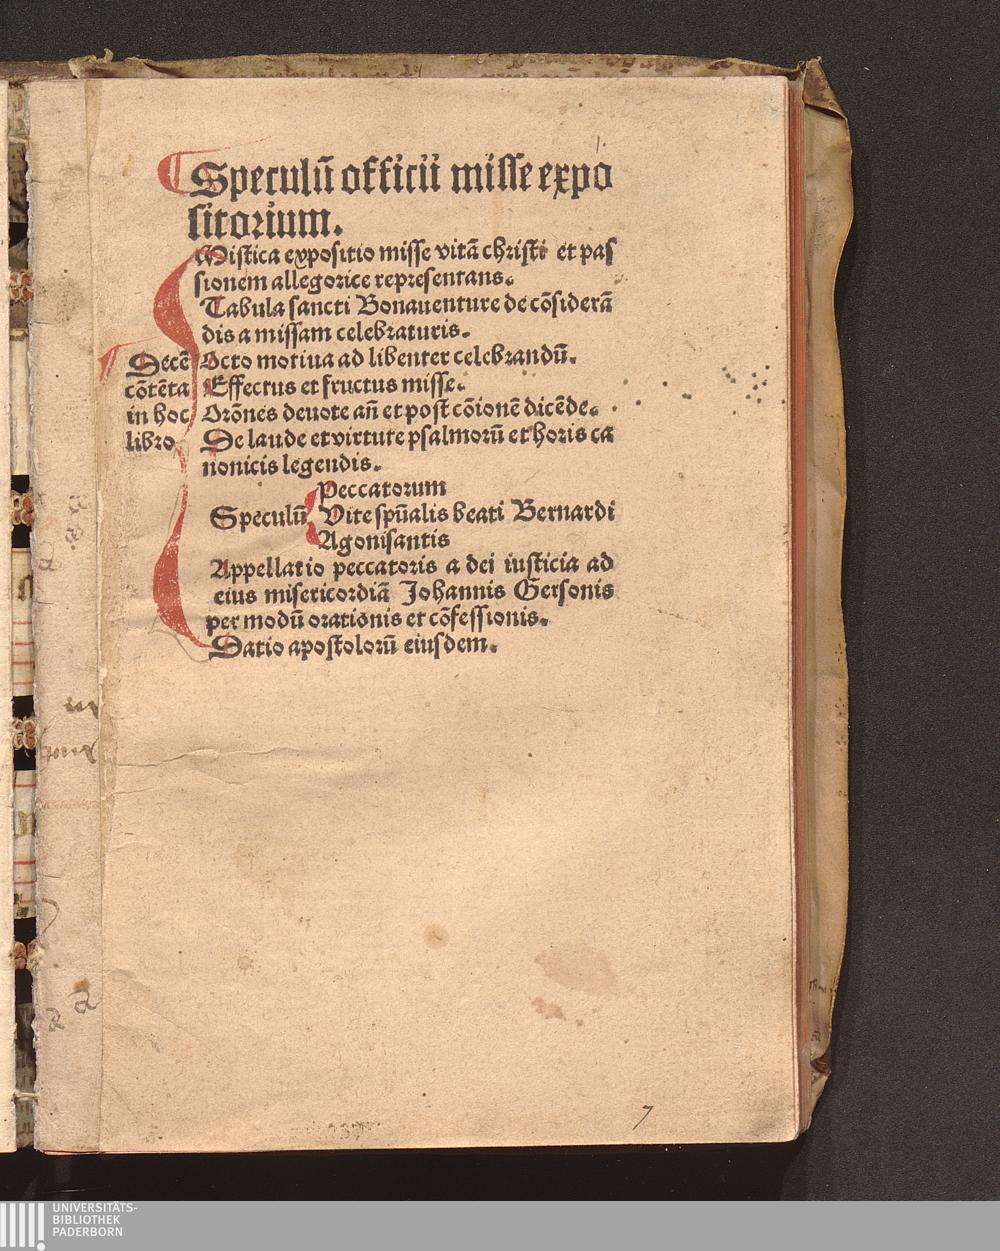 Speculū officii misse expo
sitorium.
Mistica expositio misse vitā christi et pas
sionem allegorice representans.
Tabula sancti Bonauenture de cōsiderā
dis a missam celebraturis.
Octo motiua ad libenter celebrandū.
Effectus et fructus misse.
Orōnes deuote añ et post cōionē dicēde.
De laude et virtute psalmorū et horis ca
nonicis legendis.
Hec cē
cōtēta
in hoc
libro
Peccatorum
Speculū Vite spūalis beati Bernardi
Agonisantis
Appellatio peccatoris a dei iusticia ad
eius misericordiā Johannis Gersonis
per modū orationis et cōfessionis.
Datio apostolorū eiusdem.
7
UNIVERSITÄTS-
BIBLIOTHEK
PADERBORN